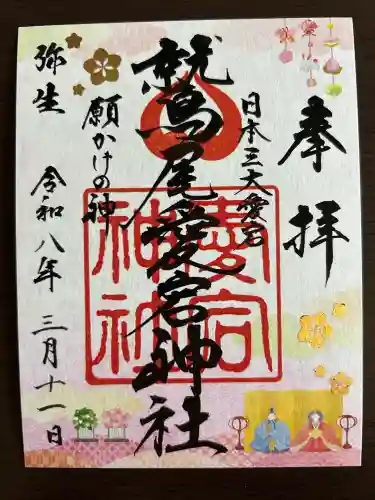 奉拝
日本三大愛宕
鷲尾愛宕神社
愛宕神社
願かけの神
弥生
令和八年三月十一日